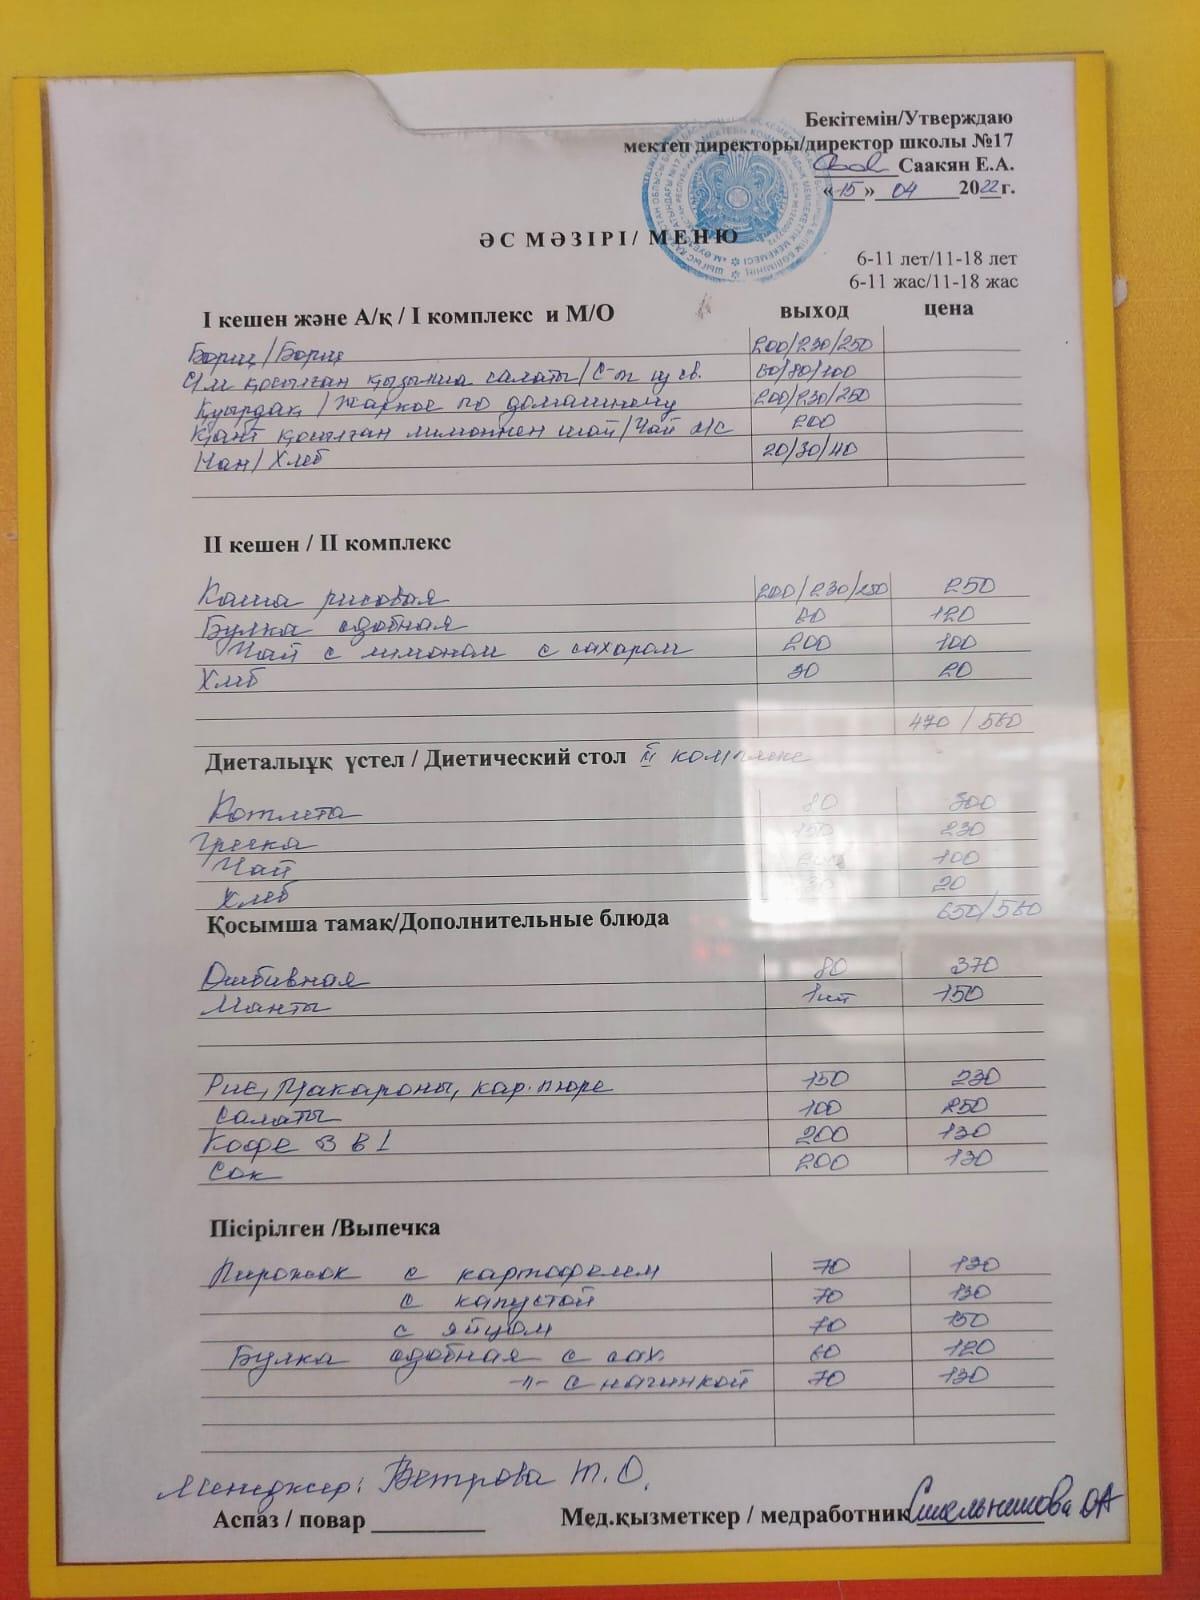 Бекітемін/Утверждаю
мектеп директоры/директор школы №17
Саакян Е.А.
«15» 04 2022г.
ӘС МӘЗІРІ/ МЕНЮ
6-11 лет/11-18 лет
6-11 жас/11-18 жас
I кешен және А/қ / I комплекс и М/О выход цена
Борщ/Борщ 200/230/250
Ө/м қосылған қызылша салаты/С-т из св. 60/80/100
Қуырдақ/Жаркое по домашнему 200/230/250
Қант қосылған лимонмен шай/Чай л/с 200
Нан/Хлеб 20/30/40
II кешен / II комплекс
Каша рисовая 200/230/250 250
Булка сдобная 60 120
Чай с лимоном с сахаром 200 100
Хлеб 30 20
470 / 560
Диеталыұқ үстел / Диетический стол III комплекс
Котлета 80 300
Гречка 150 230
Чай 200 100
Хлеб 30 20
650/560
Қосымша тамақ/Дополнительные блюда
Отбивная 80 370
Манты 1шт 150
Рис, Макароны, кар. пюре 150 230
Салаты 100 250
Кофе 3 в 1 200 130
Сок 200 130
Пісірілген /Выпечка
Пирожок с картофелем 70 130
с капустой 70 130
с яйцом 70 150
Булка сдобная с сах. 60 120
-"- с начинкой 70 130
Менеджер: Ветрова Т.О.
Аспаз / повар Мед.қызметкер / медработник